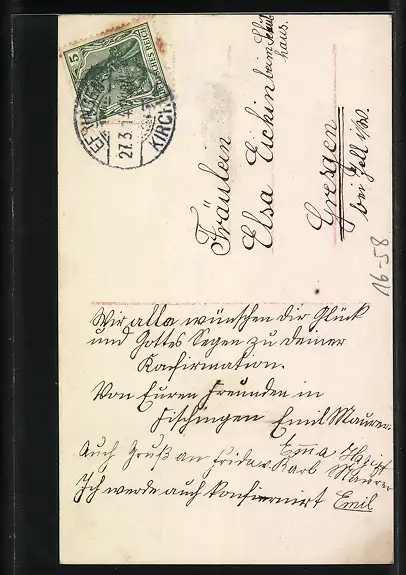 5
DEUTSCHES REICH
EFRINGEN
27.3.14
KIRCH
Fräulein
Elsa Eichin beim Schul
haus.
Gresgen
bei Zell i/W.
16-58
Wir alla wünschen dir Glück
und Gottes Segen zu deiner
Konfirmation.
Von Euren Freunden in
Fischingen Emil Maurer.
Emma
Auch Gruß an Frida u. Karl Maurer
Ich werde auch konfirmirt Emil